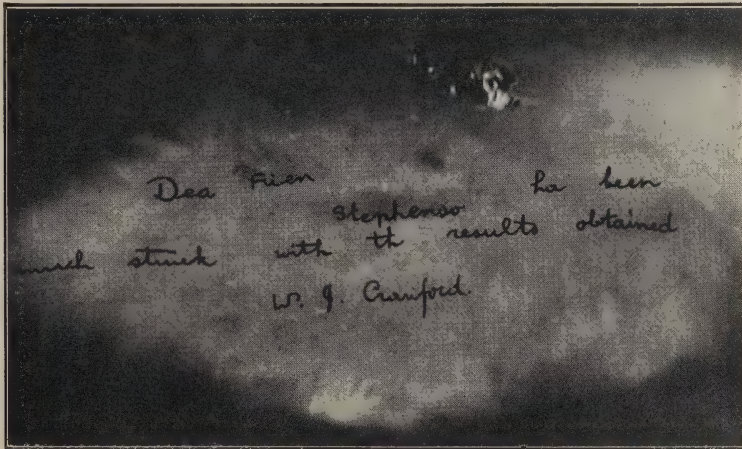 Dea Frien
Stephenso ha been
much struck with th results obtained
W. J. Crawford.